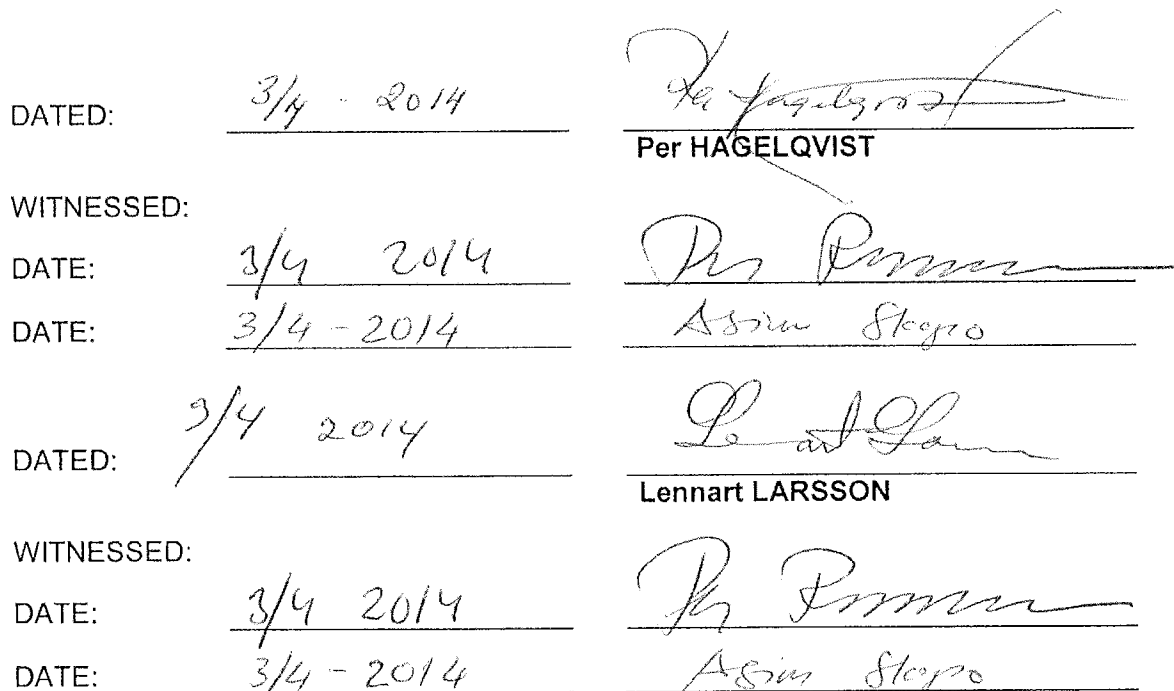 DATED: 3/4 - 2014 Per Hagelqvist
Per HAGELQVIST
WITNESSED:
DATE: 3/4 2014 Per
DATE: 3/4 - 2014 Asim Skopo
DATED: 3/4 2014
Lennart LARSSON
WITNESSED:
DATE: 3/4 2014 Per
DATE: 3/4 - 2014 Asim Skopo